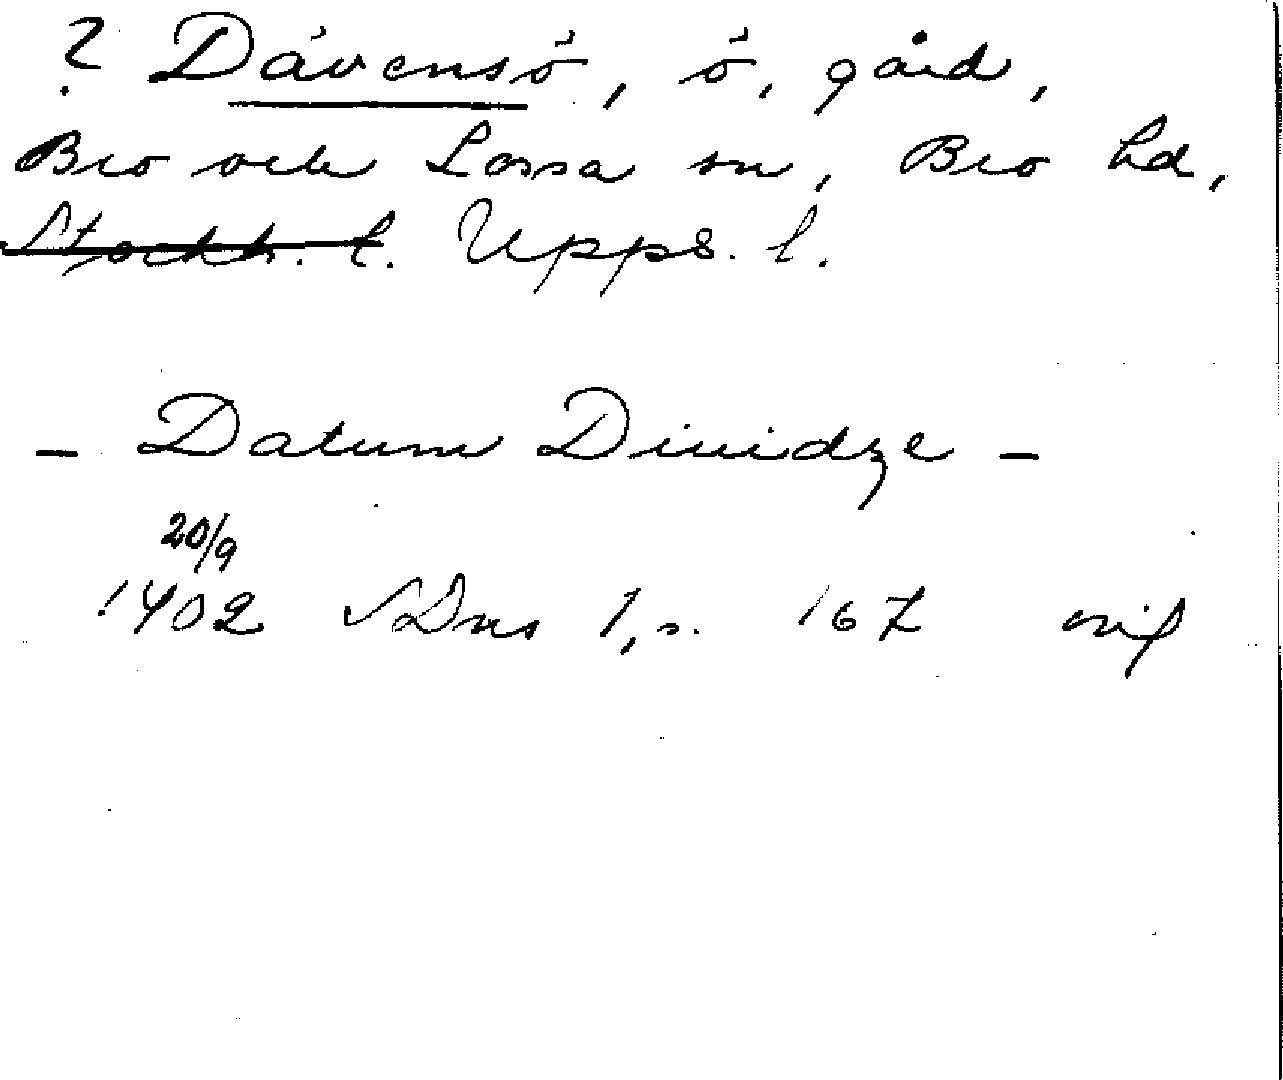 ? Dävensö, ö, gård,
Bro och Lossa sn, Bro hd,
Stockh. l. Upps. l.
– Datum Diuidze –
20/9
1402 SDns 1, s. 167 orig